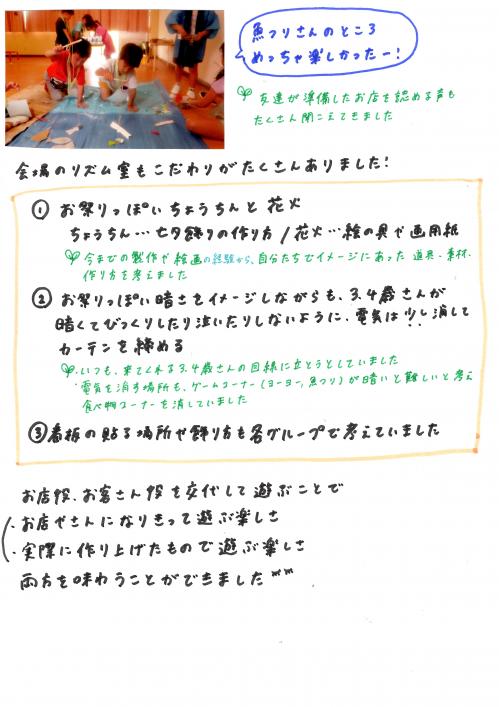 魚つりさんのところ
めっちゃ楽しかったー!
友達が準備したお店を認める声も
たくさん聞こえてきました
会場のリズム室もこだわりがたくさんありました!
① お祭りっぽいちょうちんと花火
ちょうちん…七夕飾りの作り方/花火…絵の具や画用紙
今までの製作や絵画の経験から、自分たちでイメージにあった道具・素材・
作り方を考えました
② お祭りっぽい暗さをイメージしながらも、3.4歳さんが
暗くてびっくりしたり泣いたりしないように、電気は少し消して
カーテンを締める
・いつも、来てくれる3.4歳さんの目線に立とうとしていました
・電気を消す場所も、ゲームコーナー(ヨーヨー、魚つり)が暗いと難しいと考え
食べ物コーナーを消していました
③ 看板の貼る場所や飾り方も各グループで考えていました
お店役、お客さん役を交代して遊ぶことで
・お店やさんになりきって遊ぶ楽しさ
・実際に作り上げたもので遊ぶ楽しさ
両方を味わうことができました